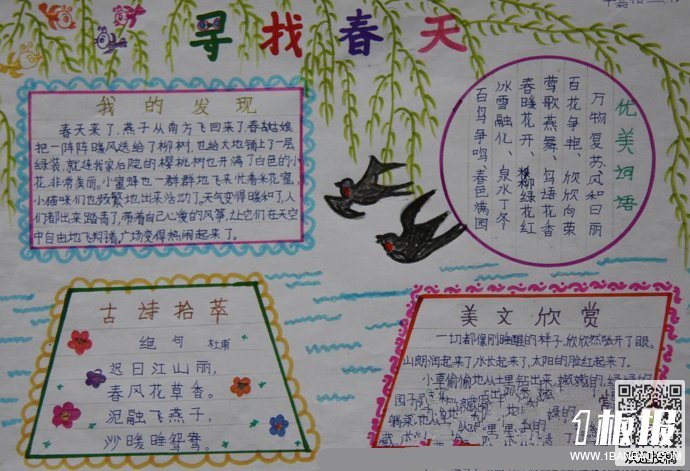 寻找春天
我的发现
春天来了,燕子从南方飞回来了,春姑娘
把一阵阵暖风送给了柳树,也给大地铺上了一层
绿装,就连我家后院的樱桃树也开满了白色的小
花,非常美丽。小蜜蜂也一群群地飞来忙着采花蜜,
小猫咪们也频繁地出来活动了,天气变得暖和了,人
们都出来踏青了,带着自己心爱的风筝,让它们在天空
中自由地飞翔着,广场变得热闹起来了。
优美词语
万物复苏、风和日丽
百花争艳、欣欣向荣
莺歌燕舞、鸟语花香
春暖花开、柳绿花红
冰雪融化、泉水丁冬
百鸟争鸣、春色满园
古诗拾萃
绝句 杜甫
迟日江山丽,
春风花草香。
泥融飞燕子,
沙暖睡鸳鸯。
美文欣赏
一切都像刚睡醒的样子,欣欣然张开了眼。
山朗润起来了,水长起来了,太阳的脸红起来了。
小草偷偷地从土里钻出来,嫩嫩的,绿绿的
园子
1板报
WWW.1BANBAO.COM